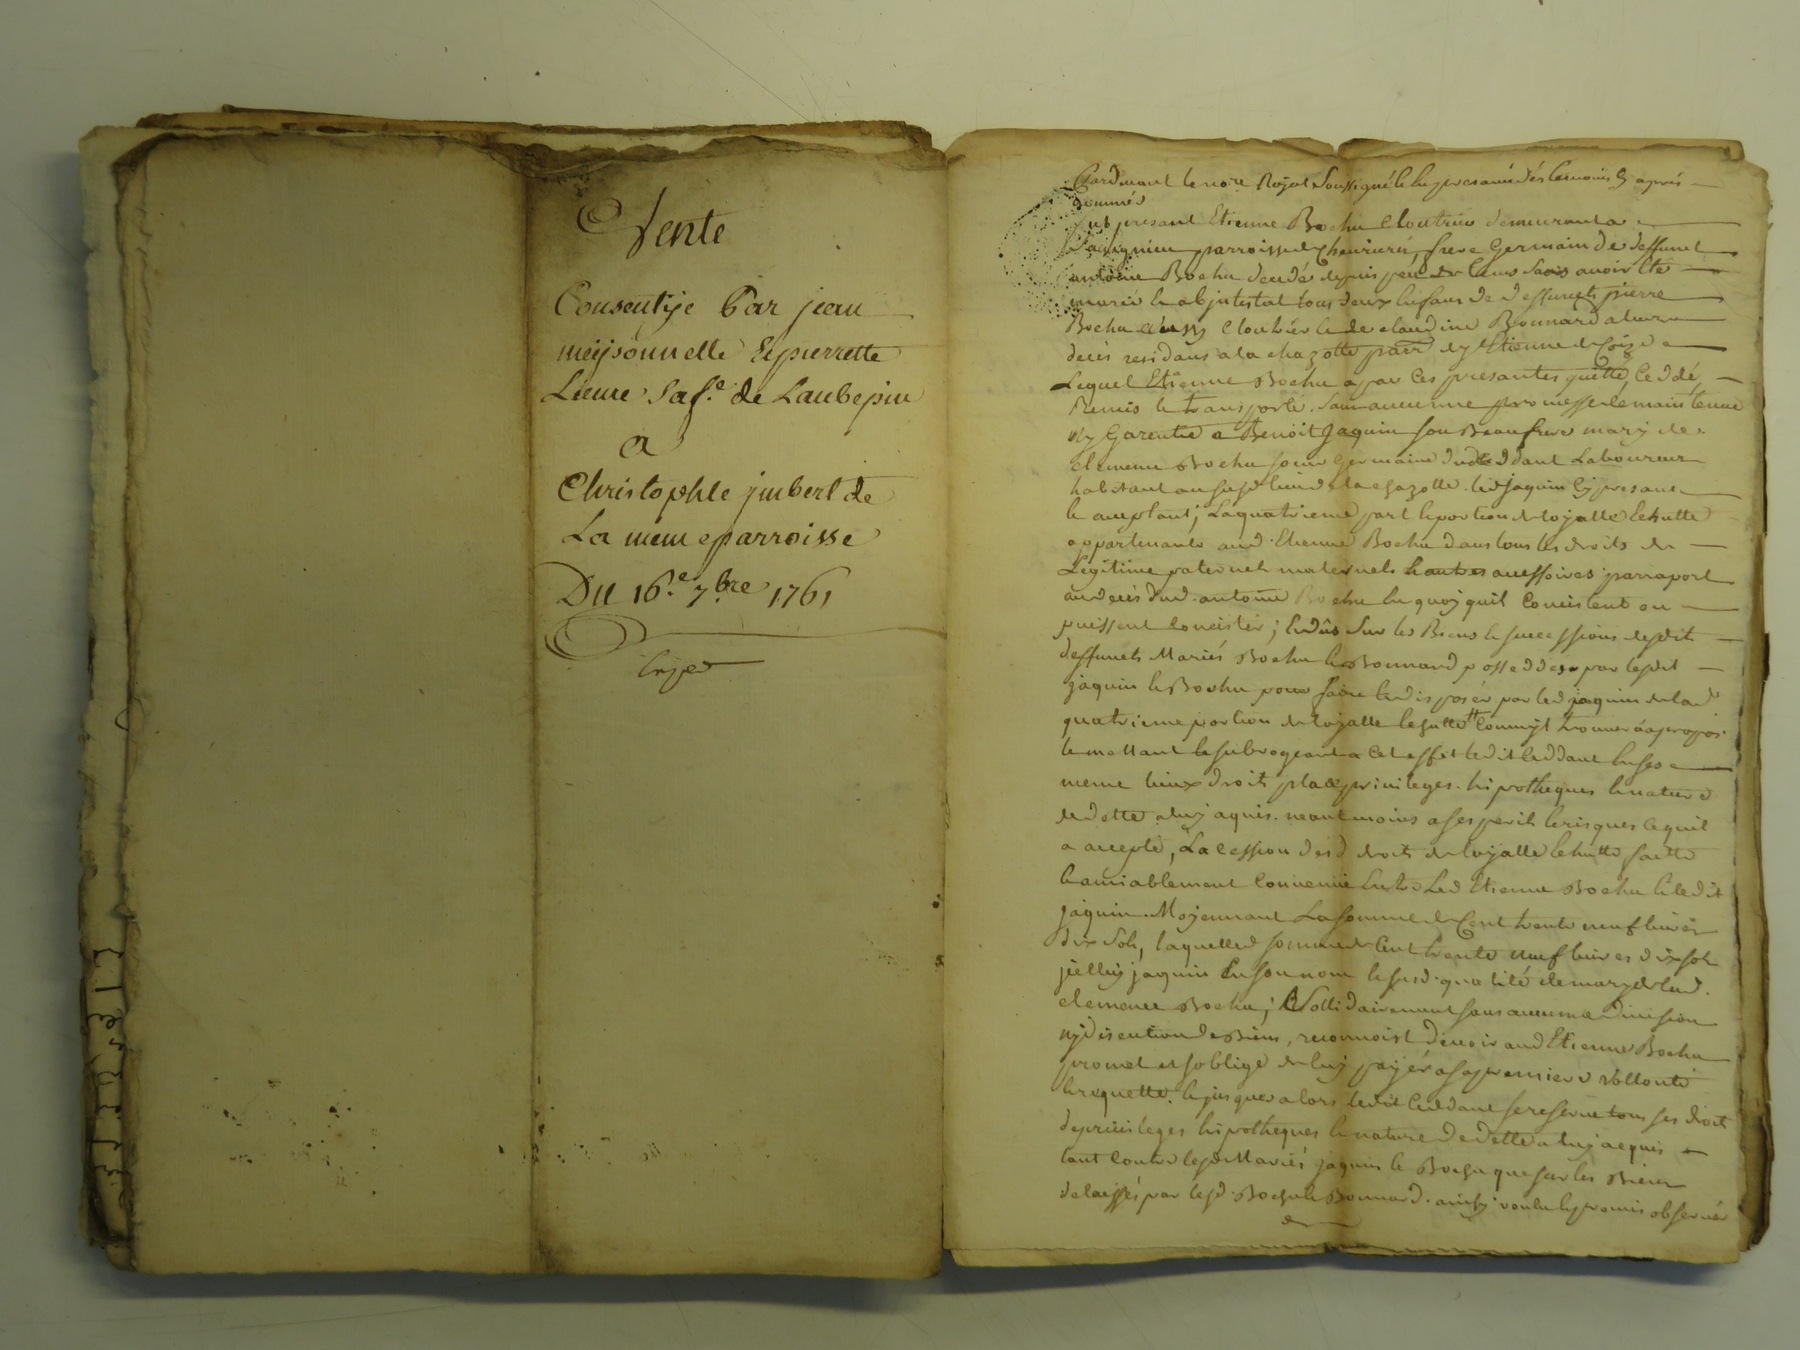 Vente
Consentije Par jean
meijsonnelle Et pierrette
Lieure Sa fe. de Laubepin
a
Christophle jmbert de
La meme parroisse
Du 16.e 7.bre 1761
Pardevant le no.re Royal Soussigné & En presance des témoins cy après
nommés
fut present Etienne Bochu Cloutrier demeurant a
parroisse de Chevrieres, frere Germain de deffunct
antoine Bochu decedé depuis peu de tems Sans avoir Eté
marié & abjntestat tous deux Enfans de deffuncts pierre
Bochu aussy Cloutrier & de claudine Bonnard a leur
decès residans a la chazotte parr. de St Etienne de Coize
Lequel Etienne Bochu a par Ces presantes quitté, Ceddé,
Remis & transporté. Sans aucunne promesse de maintenue
Ny Garentie a Benoit Jaquin son Beaufrere mary de
Clemence Bochu soeur Germaine dud. Ceddant Laboureur
habitant au susd. lieu de la chazotte. led. jaquin Cy presant
& acceptant; La quatrieme part & portion de loyalle Echutte
appartenante aud. Etienne Bochu dans tous les droits de
Legitime paternels maternels & autres accessoires parraport
au decés dud. antoine Bochu En quoy quil Consistent ou
puissent Concister; Endûs Sur les Biens & successions desdits
deffuncts Mariés Bochu & Bonnard possedées par lesdits
jaquin & Bochu pour faire & disposer par led. jaquin de lad.
quatrieme portion de loyalle Echutte Comm'jl trouvera a propos
le mettant & subrogeant a Cet effet ledit Ceddant En ses
meme lieux droits place privileges. hipotheques & nature
de dette a luy aquis. neantmoins a ses perils & risques Ce quil
a accepté, La Cession desd. droits de loyalle Echutte faitte
& amiablement Convenue Entre Led. Etienne Bochu & ledit
jaquin. Moyennant La somme de Cent trente neuf livres
dix Sols, laquelle somme de Cent trente neuf livres dix sols
jcelluy jaquin En son nom & susd. qualité de mary de lad.
Clemence Bochu; & Sollidairement sans aucune division
ny discution de Biens, reconnoist devoir aud. Etienne Bochu
promet et soblige de luy payér a sa premiere Vollonté
& requette. & jusques alors ledit Ceddant se reserve tous ses droits
de privileges hipotheques & nature de dette a luy acquis
tant Contre lesd. Mariés jaquin & Bochu que sur les Biens
delaissés par lesd. Bochu & Bonnard. ainsy voulu & promis observér